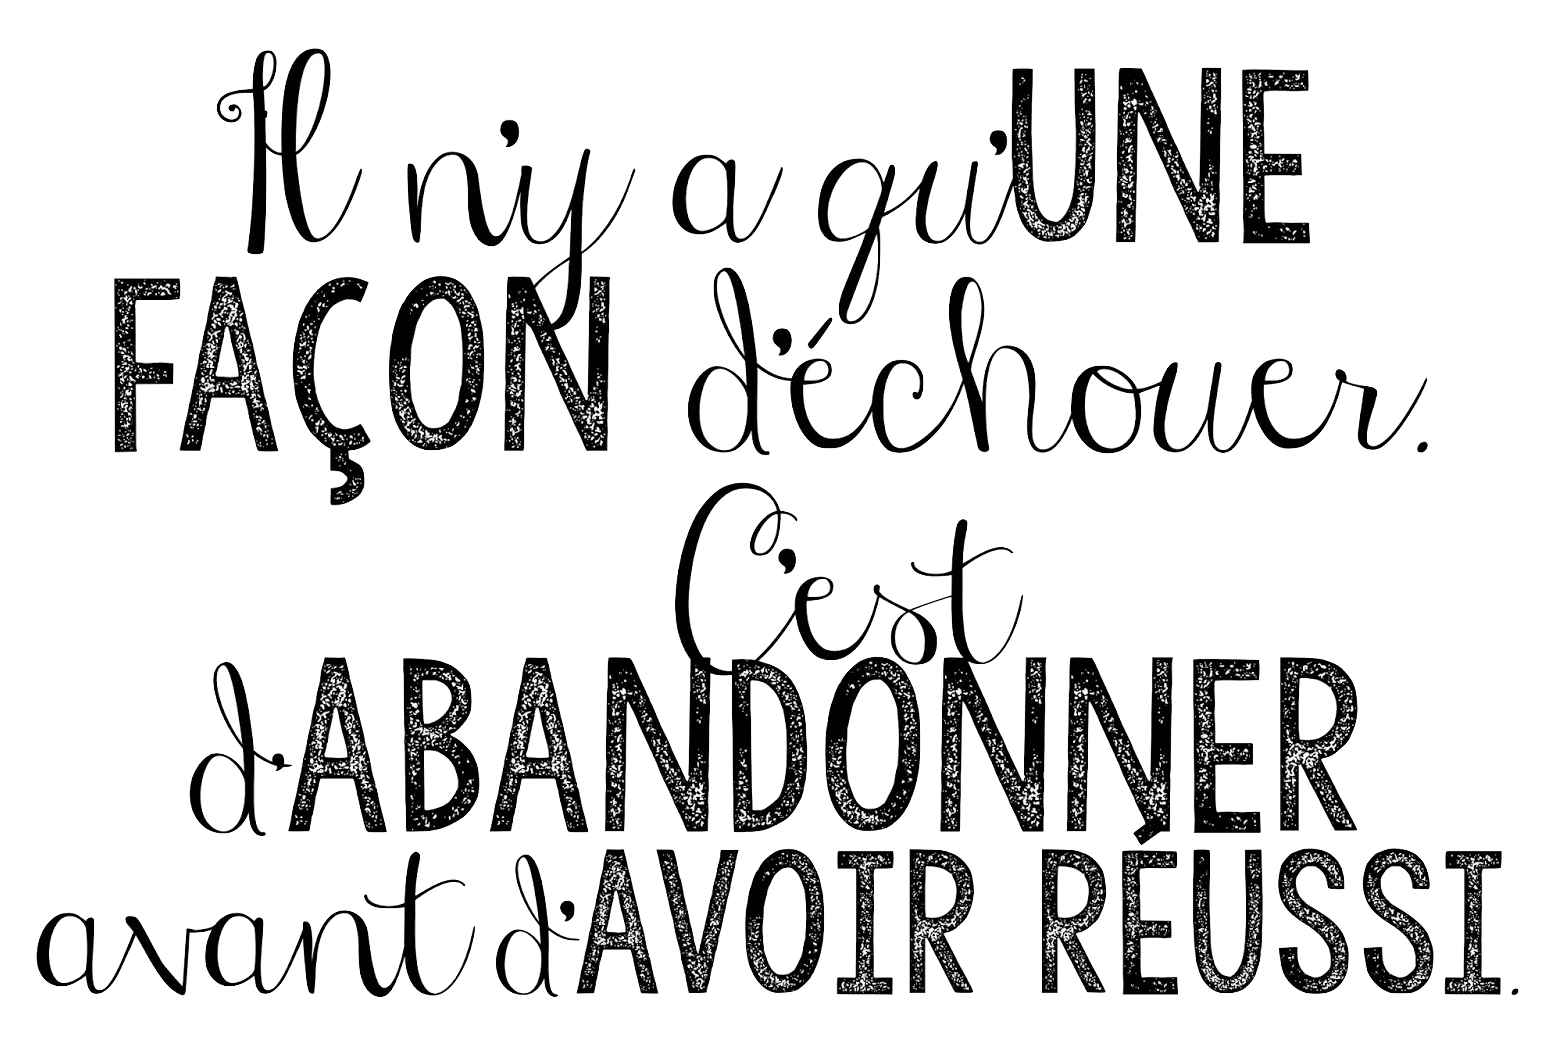 Il n'y a qu'UNE
FAÇON d'échouer.
C'est
d'ABANDONNER
avant d'AVOIR RÉUSSI.